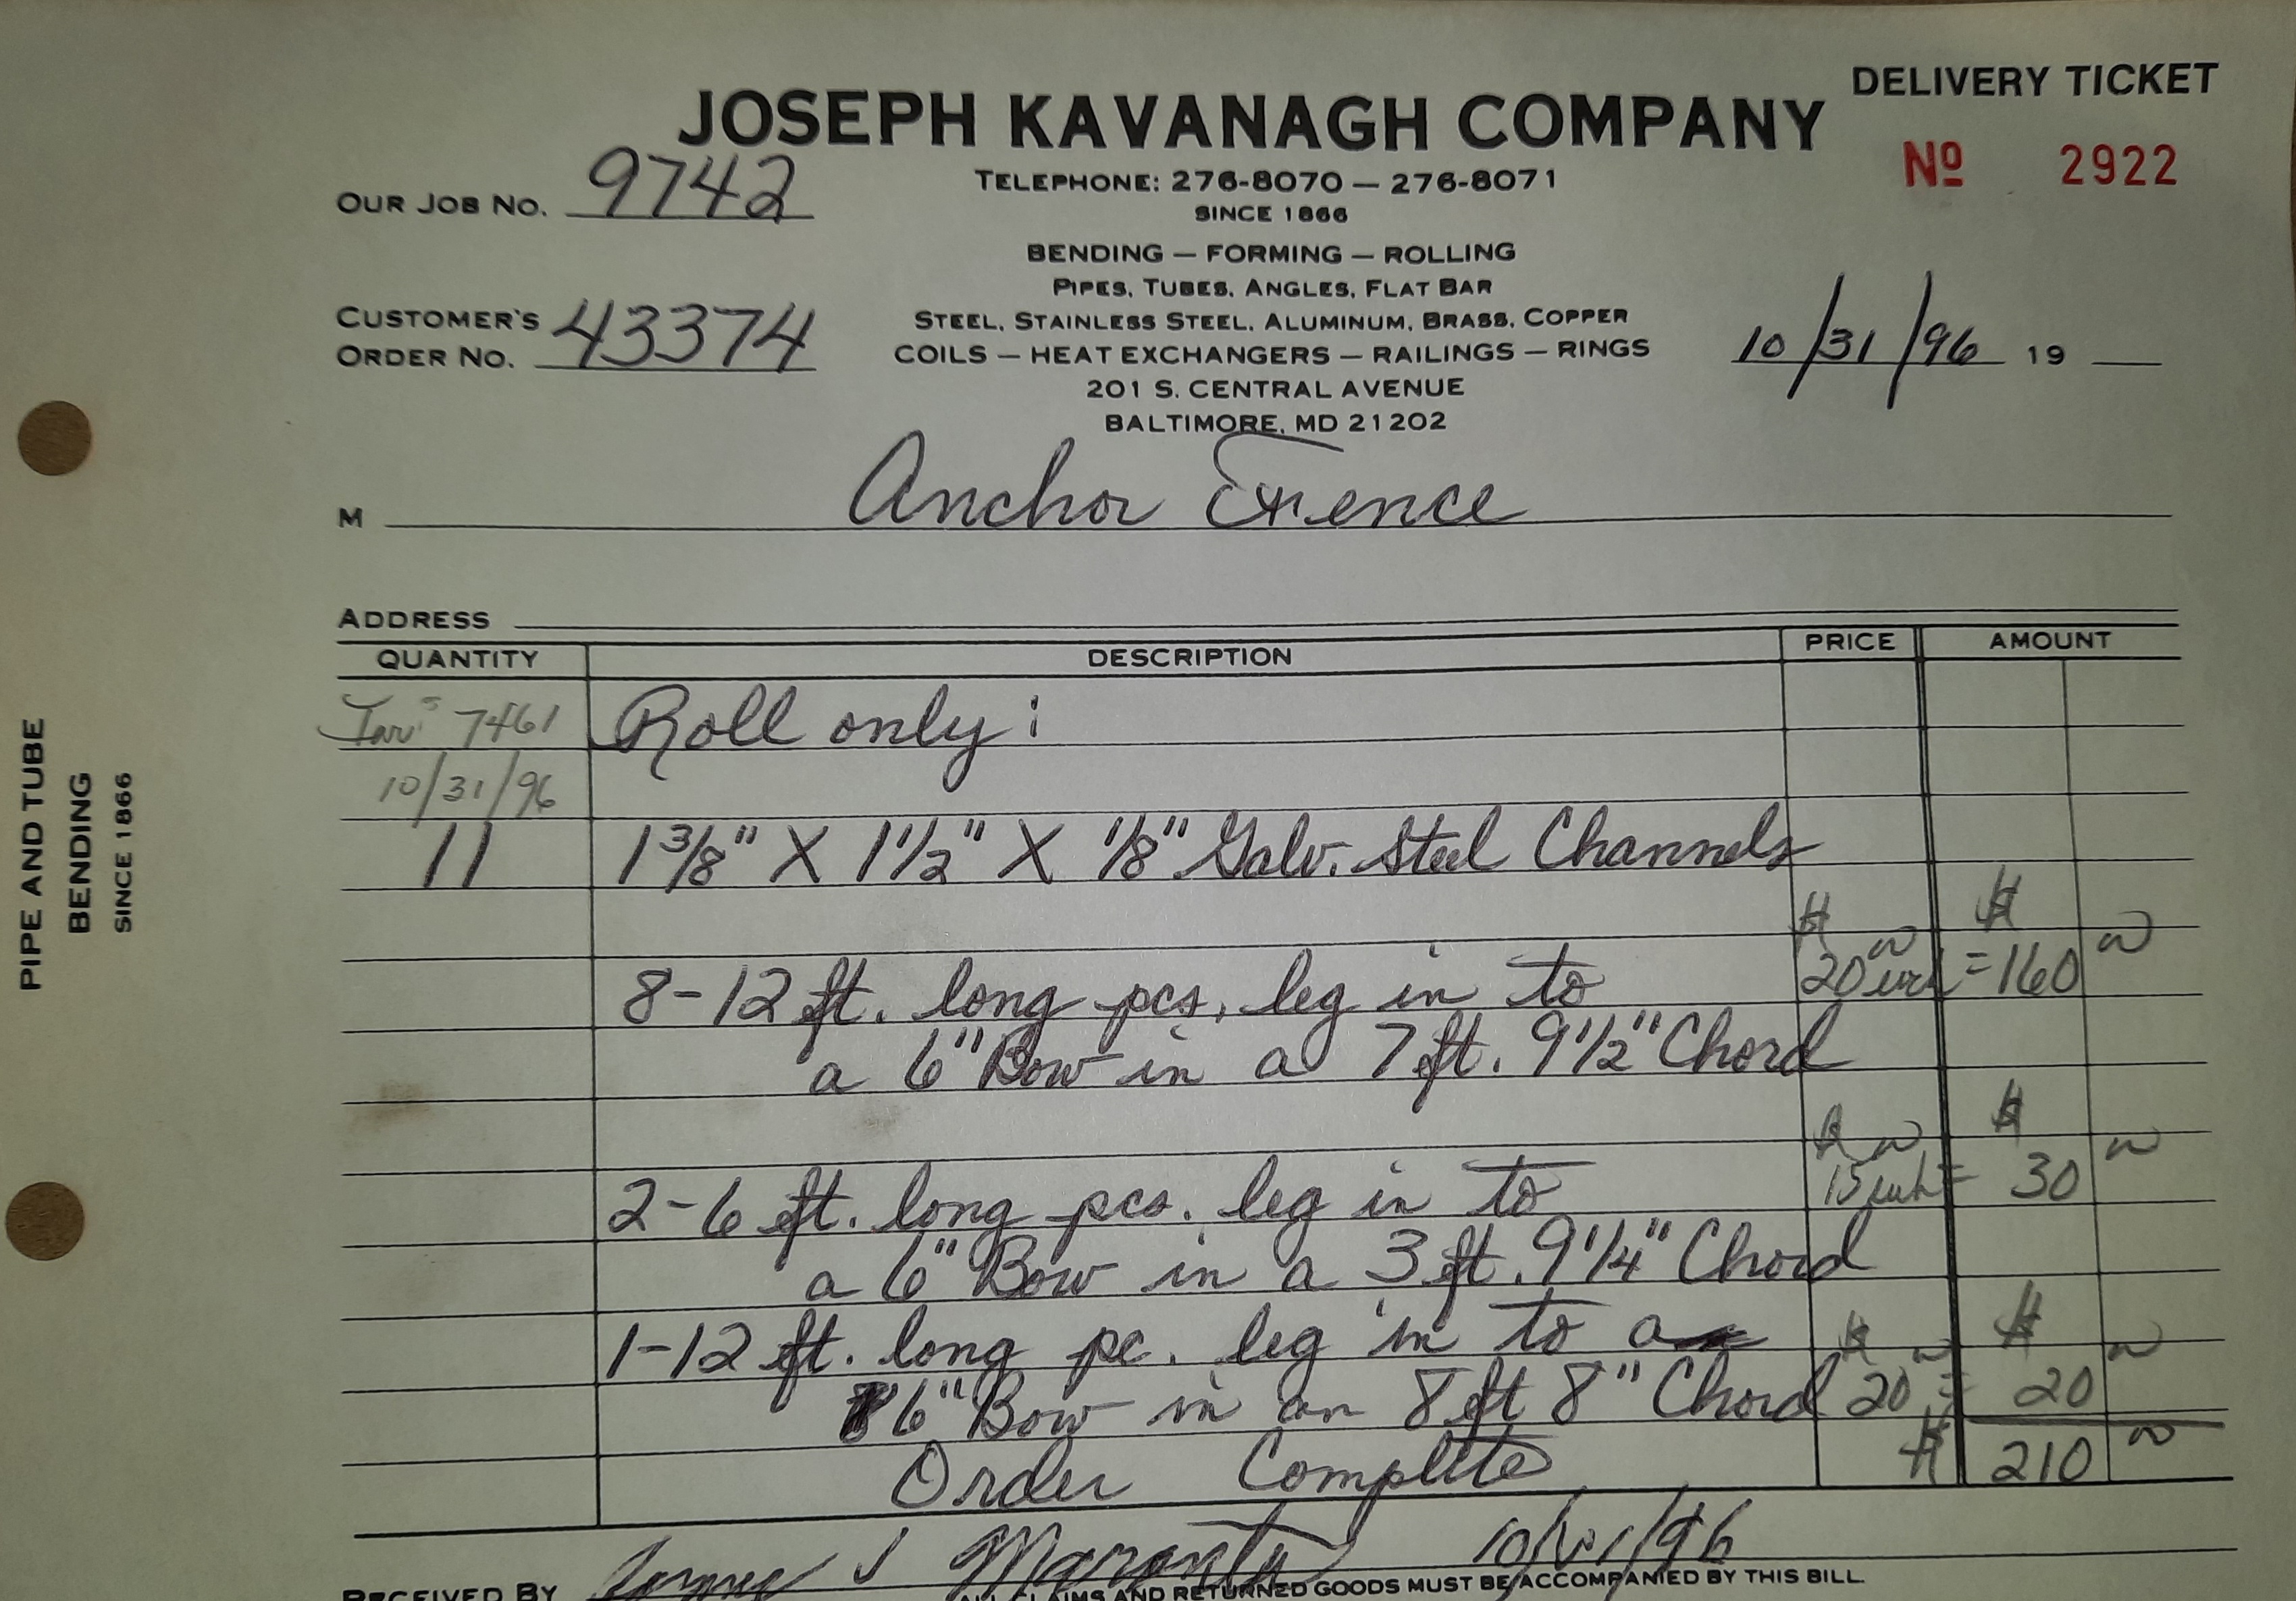 DELIVERY TICKET
JOSEPH KAVANAGH COMPANY
No 2922
OUR JOB NO. 9742
TELEPHONE: 276-8070 — 276-8071
SINCE 1866
BENDING — FORMING — ROLLING
PIPES, TUBES, ANGLES, FLAT BAR
CUSTOMER'S ORDER NO. 43374
STEEL, STAINLESS STEEL, ALUMINUM, BRASS, COPPER
COILS — HEAT EXCHANGERS — RAILINGS — RINGS
10/31/96 19
201 S. CENTRAL AVENUE
BALTIMORE, MD 21202
M Anchor Fence
ADDRESS
QUANTITY DESCRIPTION PRICE AMOUNT
7461 Roll only:
10/31/96
11 1 3/8" X 1 1/2" X 1/8" Galv. Steel Channels
8-12 ft. long pcs. leg in to $20 00 each = $160 00
a 6" Bow in a 7 ft. 9 1/2" Chord
2-6 ft. long pcs. leg in to $15 00 each = $30 00
a 6" Bow in a 3 ft. 9 1/4" Chord
1-12 ft. long pc. leg in to a
6" Bow in an 8 ft 8" Chord $20 00 = $20 00
Order Complete $210 00
RECEIVED BY 
CLAIMS AND RETURNED GOODS MUST BE ACCOMPANIED BY THIS BILL.
PIPE AND TUBE
BENDING
SINCE 1866